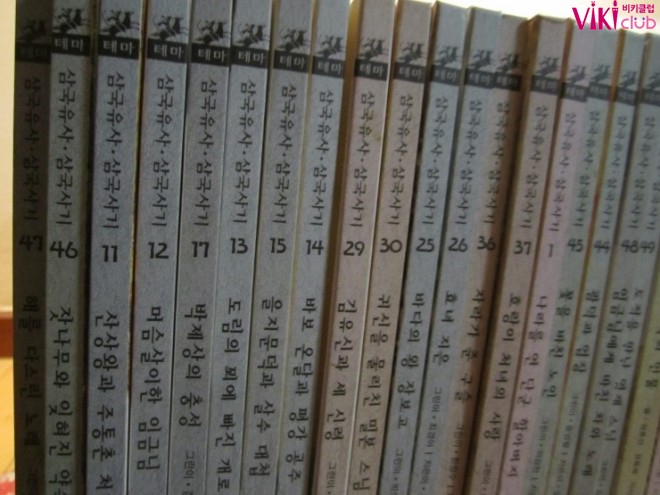 VIKI 비키클럽 club
테마 삼국유사·삼국사기 47 해를 다스린 노래
테마 삼국유사·삼국사기 46 잣나무와 잊혀진 약속
테마 삼국유사·삼국사기 11 산상왕과 주통촌 처
테마 삼국유사·삼국사기 12 머슴살이한 임금님
테마 삼국유사·삼국사기 17 박제상의 충성
테마 삼국유사·삼국사기 13 도림의 꾀에 빠진 개로
테마 삼국유사·삼국사기 15 을지문덕과 살수 대첩
테마 삼국유사·삼국사기 14 바보 온달과 평강 공주
테마 삼국유사·삼국사기 29 김유신과 세 신령
테마 삼국유사·삼국사기 30 귀신을 물리친 밀본 스님
테마 삼국유사·삼국사기 25 바다의 왕 장보고
테마 삼국유사·삼국사기 26 효녀 지은
테마 삼국유사·삼국사기 36 자라가 준 구슬
테마 삼국유사·삼국사기 37 호랑이 처녀의 사랑
테마 삼국유사·삼국사기 1 나라를 연 단군 할아버지
테마 삼국유사·삼국사기 45 꽃을 바친 노인
삼국유사·삼국사기 44
삼국유사·삼국사기 48
삼국유사·삼국사기 49